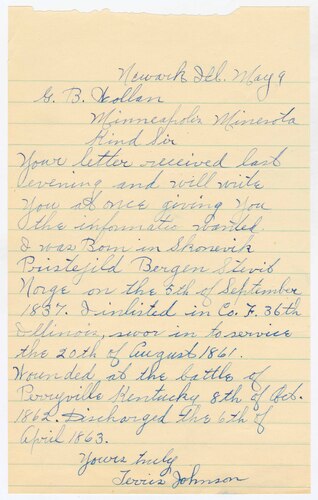 Newark Ill. May 9
G. B. Wollan
Minneapolis Minesota
Kind Sir
Your letter received last
evening and will write
You at once giving You
the informatic wanted,
I was Born in Skonevik
Prestefild Bergen Stivit
Norge on the 5th of September
1837. I inlisted in Co. F. 36th
Illinois, swor in to service
the 20th of August 1861.
Wounded, at the battle of
Perryville Kentucky 8th of Oct.
1862. Discharged the 6th of
April 1863.
Yours truly
Terris Johnson